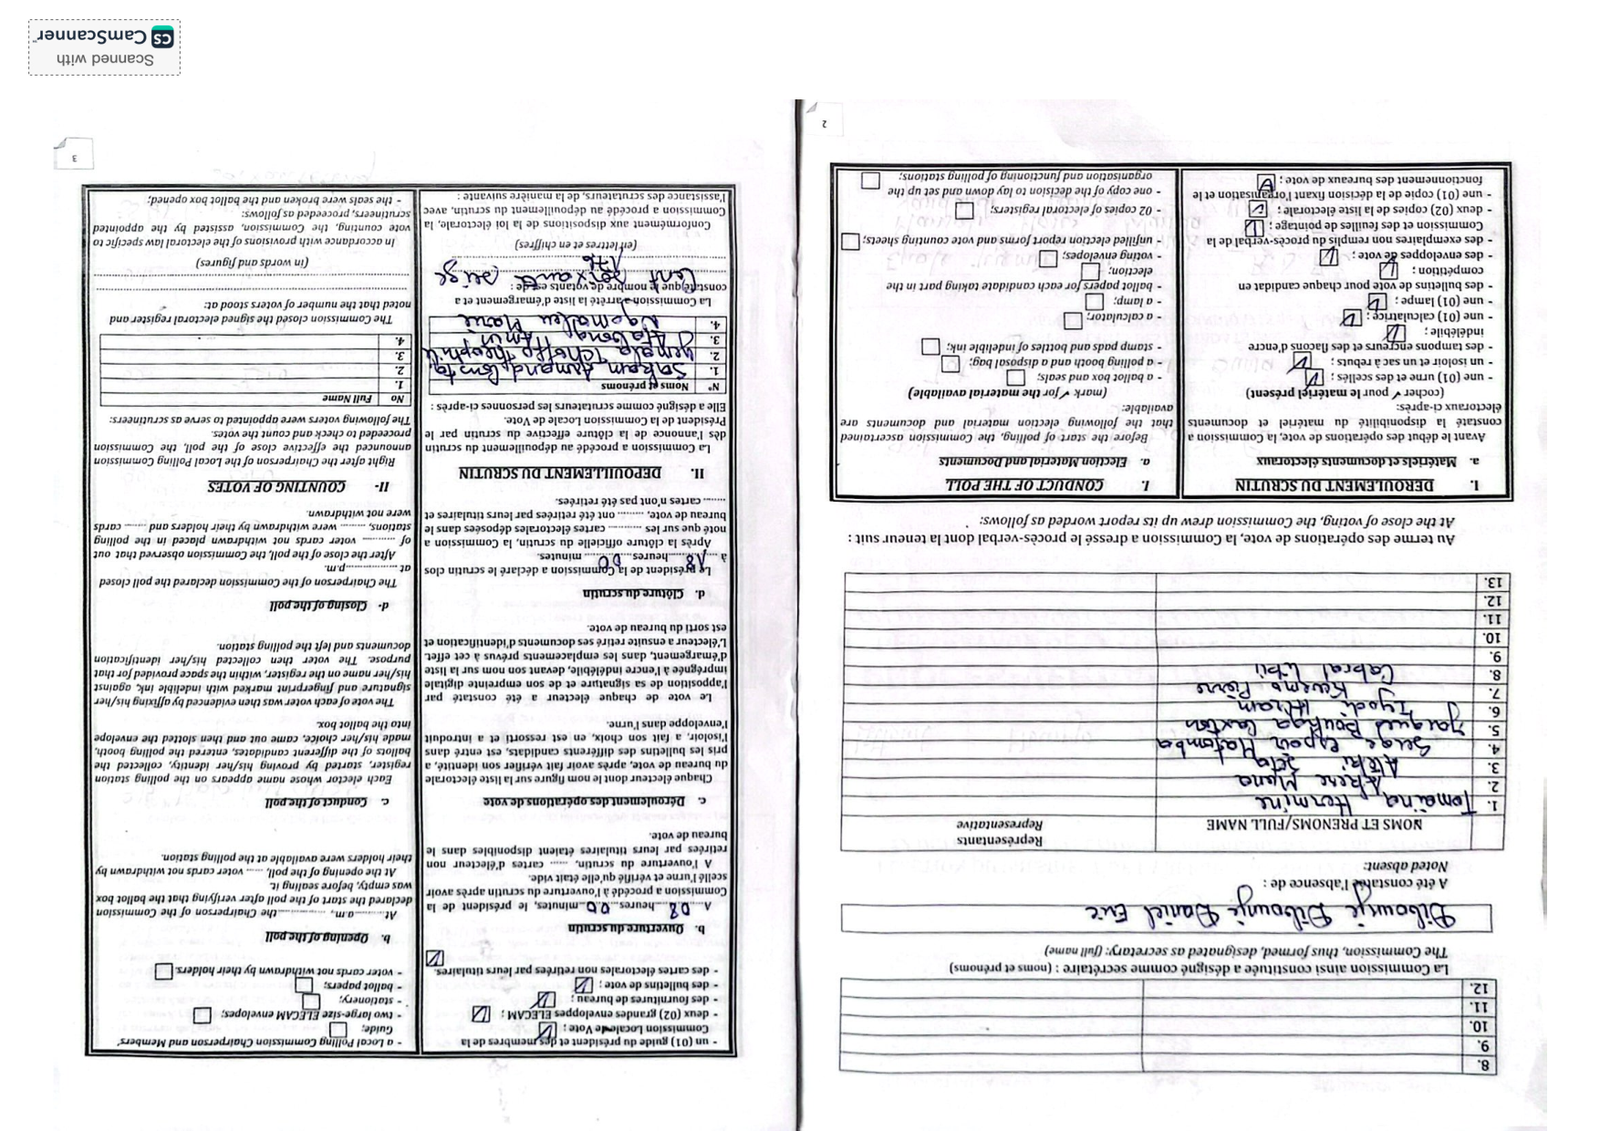 8.
9.
10.
11.
12.
La Commission ainsi constituée a désigné comme secrétaire : (noms et prénoms)
The Commission, thus formed, designated as secretary: (full name)
Dibounje Dibounje Daniel Eric
A été constatée l'absence de :
Noted absent:
NOMS ET PRENOMS/FULL NAME
Représentants
Representative
1. Tomaïna Hermine
2. Akese Mana
3. Alêki
4. Serge espoir Matomba
5. Jacques Bouhga
6. Iyodi Hiram
7. Kwemo Pierre
8. Cabral Libii
9.
10.
11.
12.
13.
Au terme des opérations de vote, la Commission a dressé le procès-verbal dont la teneur suit :
At the close of voting, the Commission drew up its report worded as follows:
I. DEROULEMENT DU SCRUTIN
a. Matériels et documents électoraux
Avant le début des opérations de vote, la Commission a
constaté la disponibilité du matériel et documents
électoraux ci-après:
(cocher ✓ pour le matériel présent)
- une (01) urne et des scellés ;
- un isoloir et un sac à rebuts ;
- des tampons encreurs et des flacons d'encre
indélébile ;
- une (01) calculatrice ;
- une (01) lampe ;
- des bulletins de vote pour chaque candidat en
compétition ;
- des enveloppes de vote ;
- des exemplaires non remplis du procès-verbal de la
Commission et des feuilles de pointage ;
- deux (02) copies de la liste électorale ;
- une (01) copie de la décision fixant l'organisation et le
fonctionnement des bureaux de vote ;
I. CONDUCT OF THE POLL
a. Election Material and Documents
Before the start of polling, the Commission ascertained
that the following election material and documents are
available:
(mark ✓ for the material available)
- a ballot box and seals;
- a polling booth and a disposal bag;
- stamp pads and bottles of indelible ink;
- a calculator;
- a lamp;
- ballot papers for each candidate taking part in the
election;
- voting envelopes;
- unfilled election report forms and vote counting sheets;
- 02 copies of electoral registers;
- one copy of the decision to lay down and set up the
organisation and functioning of polling stations;
2
- un (01) guide du président et des membres de la
Commission Locale de Vote ;
- deux (02) grandes enveloppes ELECAM ;
- des fournitures de bureau ;
- des bulletins de vote ;
- des cartes électorales non retirées par leurs titulaires.
b. Ouverture du scrutin
A 08 heures 00 minutes, le président de la
Commission a procédé à l'ouverture du scrutin après avoir
scellé l'urne et vérifié qu'elle était vide.
A l'ouverture du scrutin, ...... cartes d'électeur non
retirées par leurs titulaires étaient disponibles dans le
bureau de vote.
c. Déroulement des opérations de vote
Chaque électeur dont le nom figure sur la liste électorale
du bureau de vote, après avoir fait vérifier son identité, a
pris les bulletins des différents candidats, est entré dans
l'isoloir, a fait son choix, en est ressorti et a introduit
l'enveloppe dans l'urne.
Le vote de chaque électeur a été constaté par
l'apposition de sa signature et de son empreinte digitale
imprégnée à l'encre indélébile, devant son nom sur la liste
d'émargement, dans les emplacements prévus à cet effet.
L'électeur a ensuite retiré ses documents d'identification et
est sorti du bureau de vote.
d. Clôture du scrutin
Le président de la Commission a déclaré le scrutin clos
à 18 heures 00 minutes.
Après la clôture officielle du scrutin, la Commission a
noté que sur les .......... cartes électorales déposées dans le
bureau de vote, ........ ont été retirées par leurs titulaires et
...... cartes n'ont pas été retirées.
II. DEPOUILLEMENT DU SCRUTIN
La Commission a procédé au dépouillement du scrutin
dès l'annonce de la clôture effective du scrutin par le
Président de la Commission Locale de Vote.
Elle a désigné comme scrutateurs les personnes ci-après :
N° Noms et prénoms
1. Sokam Armand
2. Yemele Tchoffo Theophile
3. Atabong Armin
4. Ngomaleu Marie
La Commission a arrêté la liste d'émargement et a
constaté que le nombre de votants est de :
Cent soixante seize
176
(en lettres et en chiffres)
Conformément aux dispositions de la loi électorale, la
Commission a procédé au dépouillement du scrutin, avec
l'assistance des scrutateurs, de la manière suivante :
- a Local Polling Commission Chairperson and Members'
Guide;
- two large-size ELECAM envelopes;
- stationery;
- ballot papers;
- voter cards not withdrawn by their holders.
b. Opening of the poll
At..........a.m., ..............the Chairperson of the Commission
declared the start of the poll after verifying that the ballot box
was empty, before sealing it.
At the opening of the poll, ...... voter cards not withdrawn by
their holders were available at the polling station.
c. Conduct of the poll
Each elector whose name appears on the polling station
register, started by proving his/her identity, collected the
ballots of the different candidates, entered the polling booth,
made his/her choice, came out and then slotted the envelope
into the ballot box.
The vote of each voter was then evidenced by affixing his/her
signature and fingerprint marked with indelible ink, against
his/her name on the register, within the space provided for that
purpose. The voter then collected his/her identification
documents and left the polling station.
d- Closing of the poll
The Chairperson of the Commission declared the poll closed
at ..................p.m.
After the close of the poll, the Commission observed that out
of .......... voter cards not withdrawn placed in the polling
stations, ........ were withdrawn by their holders and ...... cards
were not withdrawn.
II- COUNTING OF VOTES
Right after the Chairperson of the Local Polling Commission
announced the effective close of the poll, the Commission
proceeded to check and count the votes.
The following voters were appointed to serve as scrutineers:
No Full Name
1.
2.
3.
4.
The Commission closed the signed electoral register and
noted that the number of voters stood at:
(in words and figures)
In accordance with provisions of the electoral law specific to
vote counting, the Commission, assisted by the appointed
scrutineers, proceeded as follows:
- the seals were broken and the ballot box opened;
3
Scanned with
CS CamScanner